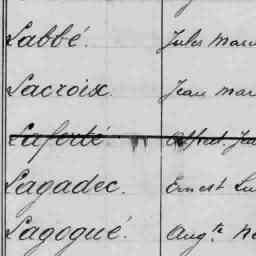 Labbé. Jules Mari
Lacroix. Jean Mar
Laforté Alfred Jea
Lagadec. Ernest Lu
Lagogué. Aug.te